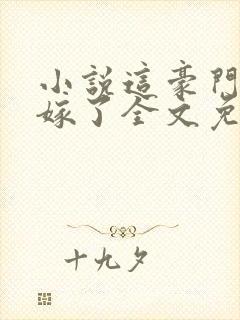 小說這豪門
嫁了全文免
十九夕